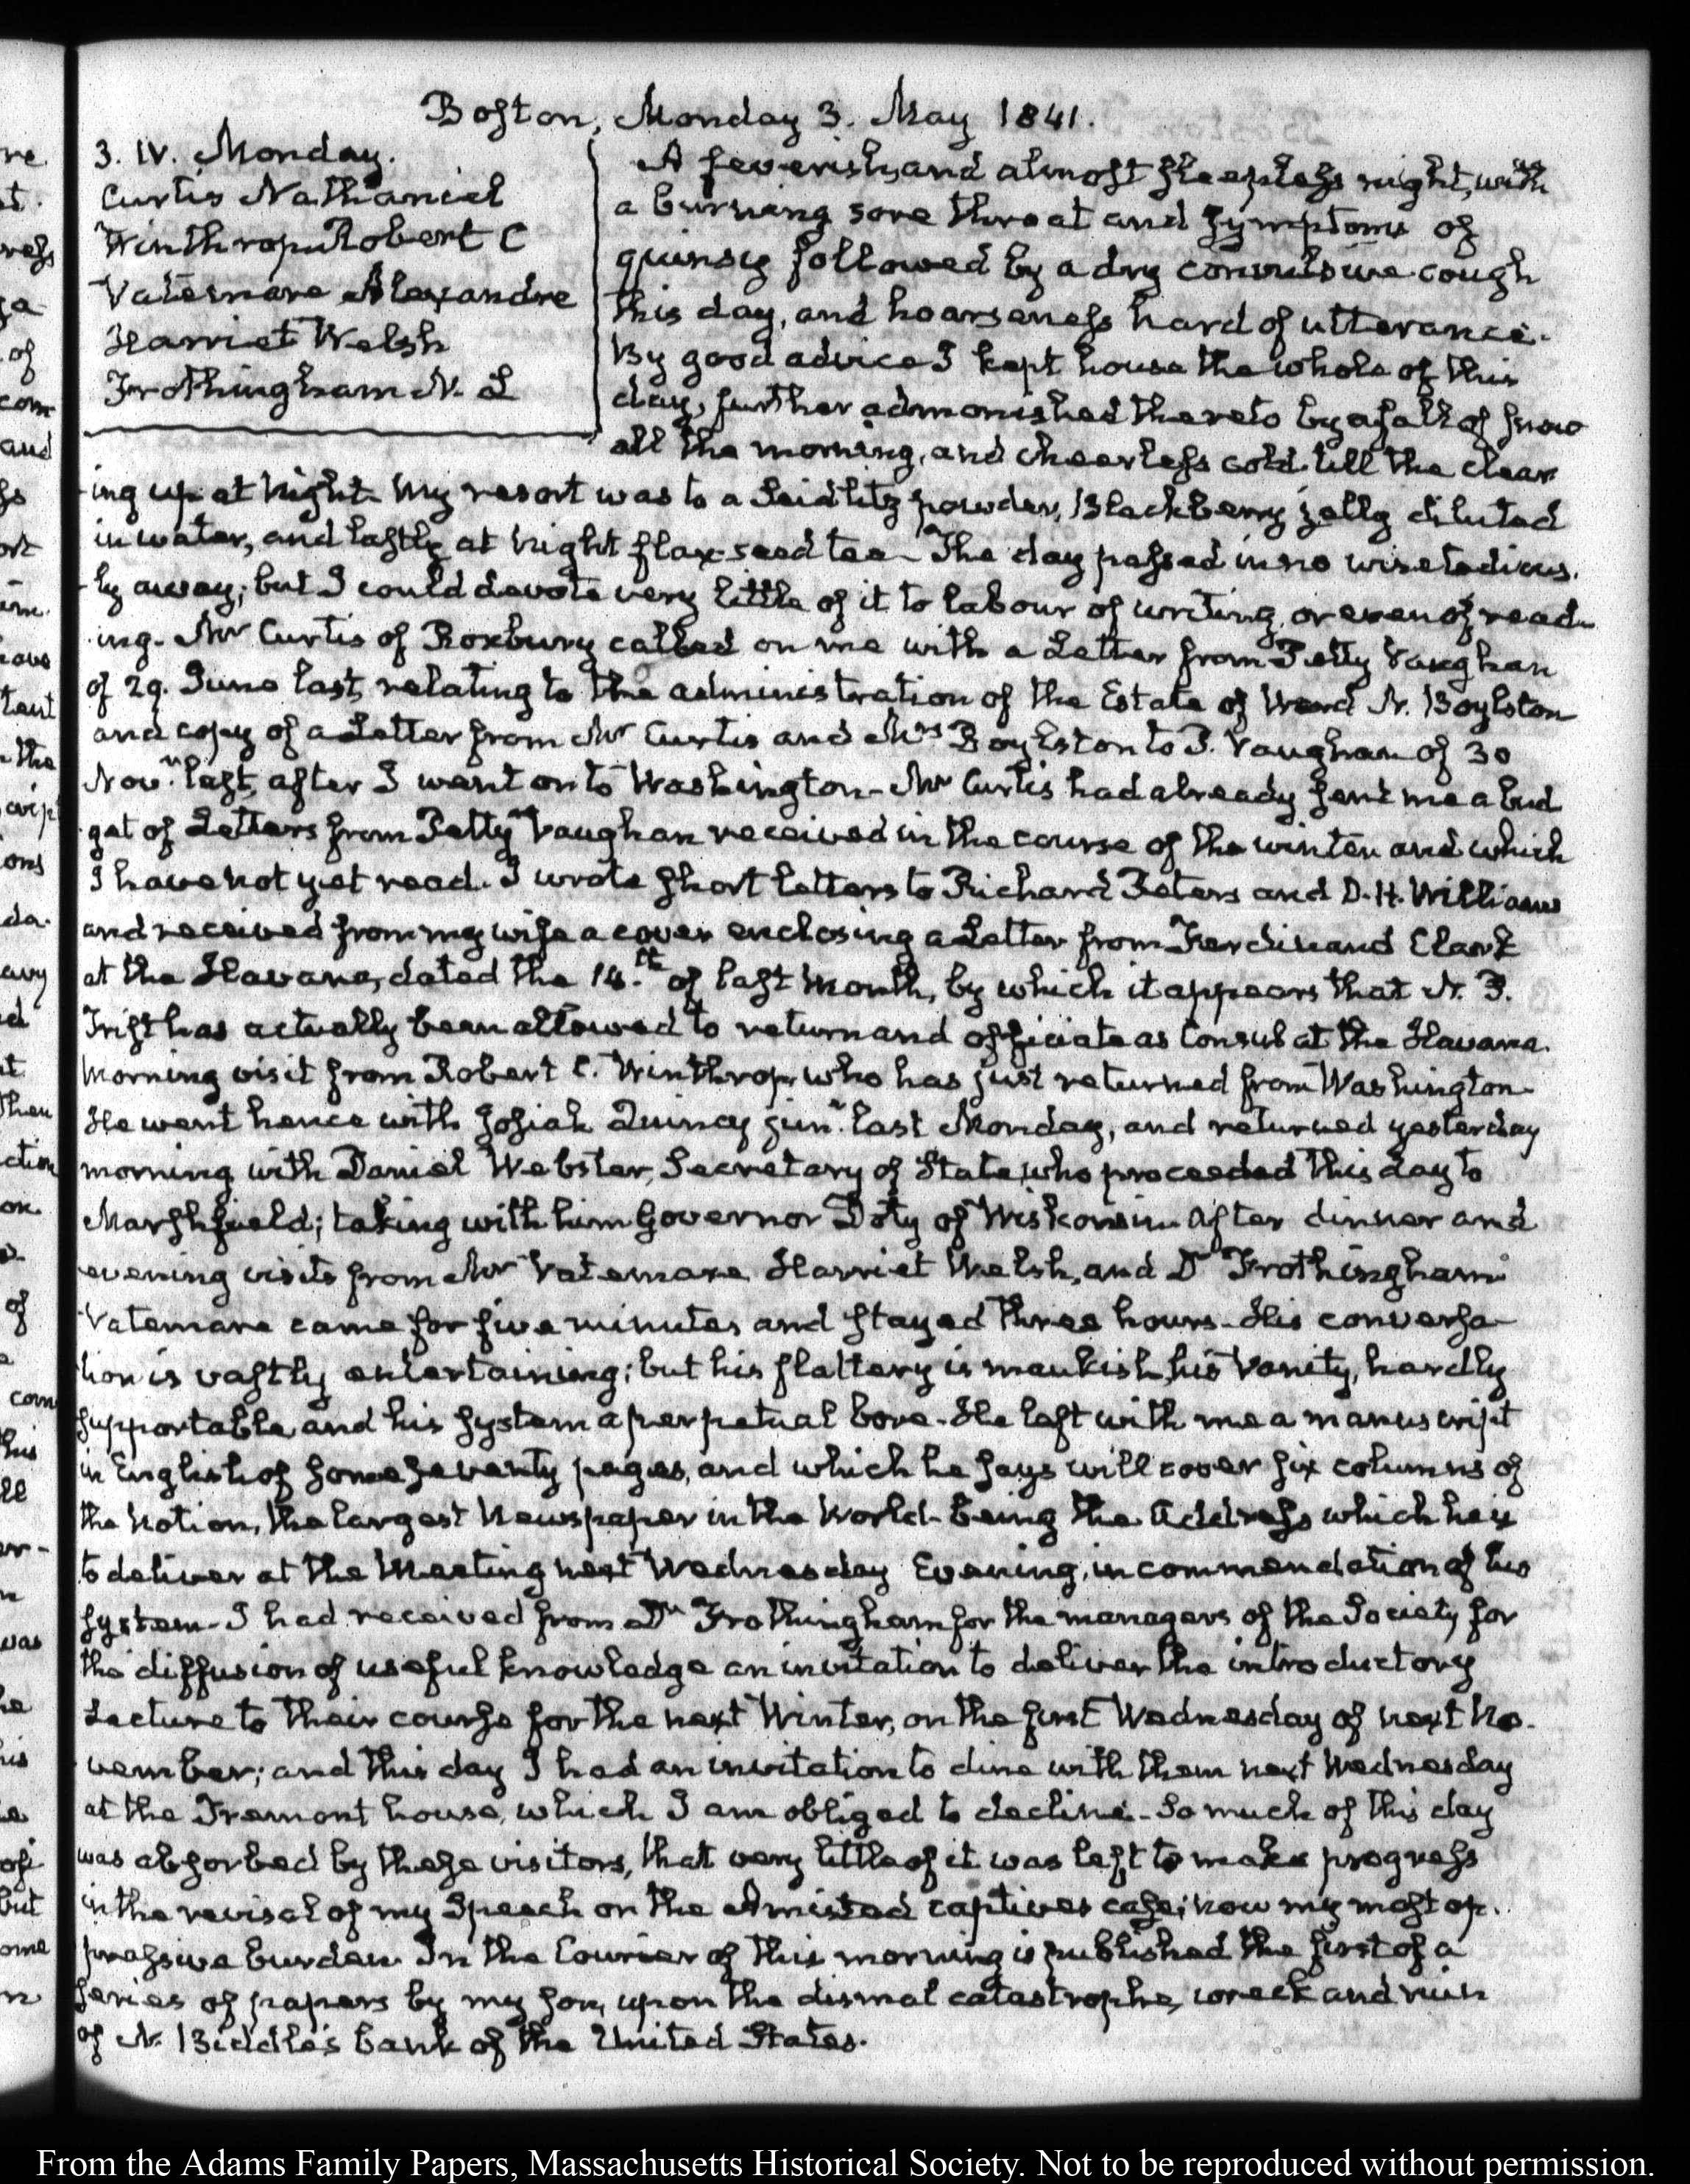 Boston, Monday 3. May 1841.
3. IV. Monday.
Curtis Nathaniel
Winthrop Robert C
Vattemare Alexandre
Harriet Welsh
Frothingham N. L
A feverish, and almost sleepless night, with
a burning sore throat and symptoms of
quinsy followed by a dry convulsive cough
this day, and hoarseness hard of utterance.
By good advice I kept house the whole of this
day, further admonished thereto by a fall of snow
all the morning, and cheerless cold till the clear
-ing up at Night. My resort was to a Seidlitz powder, Blackberry jelly diluted
in water, and lastly at Night flax-seed tea- The day passed in no wise tedious.
-ly away; but I could devote very little of it to labour of writing, or even of read-
-ing- Mr Curtis of Roxbury called on me with a Letter from Petty Vaughan
of 29. June last, relating to the administration of the Estate of Ward N. Boylston
and copy of a Letter from Mr Curtis and Mrs Boylston to P. Vaughan of 30
Novr last, after I went on to Washington- Mr Curtis had already sent me a bud
-get of Letters from Petty Vaughan received in the course of the winter and which
I have not yet read. I wrote short letters to Richard Peters and D. H. Williams
and received from my wife a cover enclosing a Letter from Ferdinand Clark
at the Havana, dated the 14.th of last Month, by which it appears that N. P.
Trist has actually been allowed to return and officiate as Consul at the Havana.
Morning visit from Robert C. Winthrop, who has just returned from Washington-
He went hence with Josiah Quincy junr last Monday, and returned yesterday
morning with Daniel Webster, Secretary of State, who proceeded this day to
Marshfield; taking with him Governor Doty of Wiskonsin. After dinner and
evening visits from Mr Vatemare Harriet Welsh, and Dr Frothingham
Vatemare came for five minutes and stayed three hours- His conversa-
tion is vastly entertaining; but his flattery is maukish, his Vanity, hardly
supportable, and his system a perpetual bore- He left with me a manuscript
in English of some seventy pages, and which he says will cover six columns of
the Notion, the largest Newspaper in the World- being the Address which he is
to deliver at the Meeting next Wednesday Evening, in commendation of his
system- I had received from Dr Frothingham for the managers of the Society for
the diffusion of useful knowledge an invitation to deliver the introductory
Lecture to their course for the next Winter, on the first Wednesday of next No-
vember; and this day I had an invitation to dine with them next Wednesday
at the Tremont house, which I am obliged to decline- So much of this day
was absorbed by these visitors, that very little of it was left to make progress
in the revisal of my Speech on the Amistad captives case; now my most op-
pressive burden. In the Courier of this morning is published the first of a
series of papers by my son, upon the dismal catastrophe, wreck and ruin
of N. Biddle's bank of the United States.
From the Adams Family Papers, Massachusetts Historical Society. Not to be reproduced without permission.